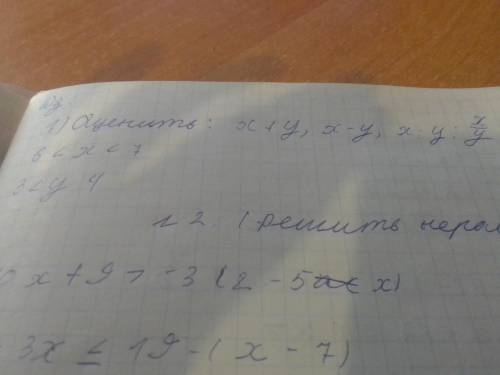 1) Оценить: x + y, x - y, x · y, x/y
6 < x < 7
3 < y 4
(решить нерав
x + 9 > -3 (2 - 5 x)
3x ≤ 19 - ( x - 7)